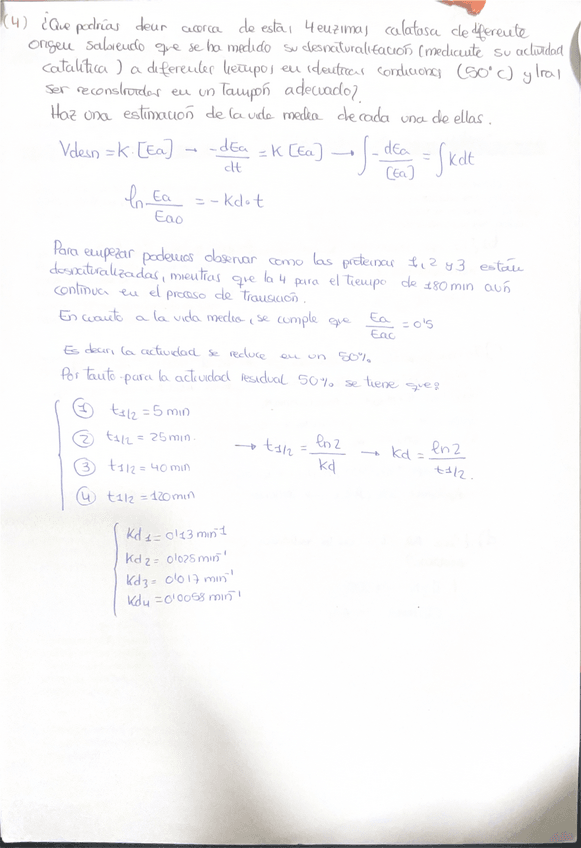 (4) ¿Que podrías decir acerca de estas 4 enzimas catalasa de diferente
origen sabiendo que se ha medido su desnaturalización (mediante su actividad
catalítica) a diferentes tiempos en identicas condiciones (50°C) y tras
ser reconstruidas en un Tampón adecuado?
Haz una estimación de la vida media de cada una de ellas.
Vdesn = K · [Ea] → - dEa/dt = K [Ea] → ∫ - dEa/[Ea] = ∫ K dt
ln Ea/Ea0 = - Kd · t
Para empezar podemos observar como las proteinas 1, 2 y 3 están
desnaturalizadas, mientras que la 4 para el tiempo de 180 min aún
continua en el proceso de transición.
En cuanto a la vida media, se cumple que Ea/Ea0 = 0'5
Es decir la actividad se reduce en un 50%
Por tanto para la actividad residual 50% se tiene que:
① t1/2 = 5 min
② t1/2 = 25 min.
③ t1/2 = 40 min
④ t1/2 = 120 min
→ t1/2 = ln2/kd → kd = ln2/t1/2.
Kd1 = 0'13 min⁻¹
Kd2 = 0'025 min⁻¹
Kd3 = 0'017 min⁻¹
Kd4 = 0'0058 min⁻¹